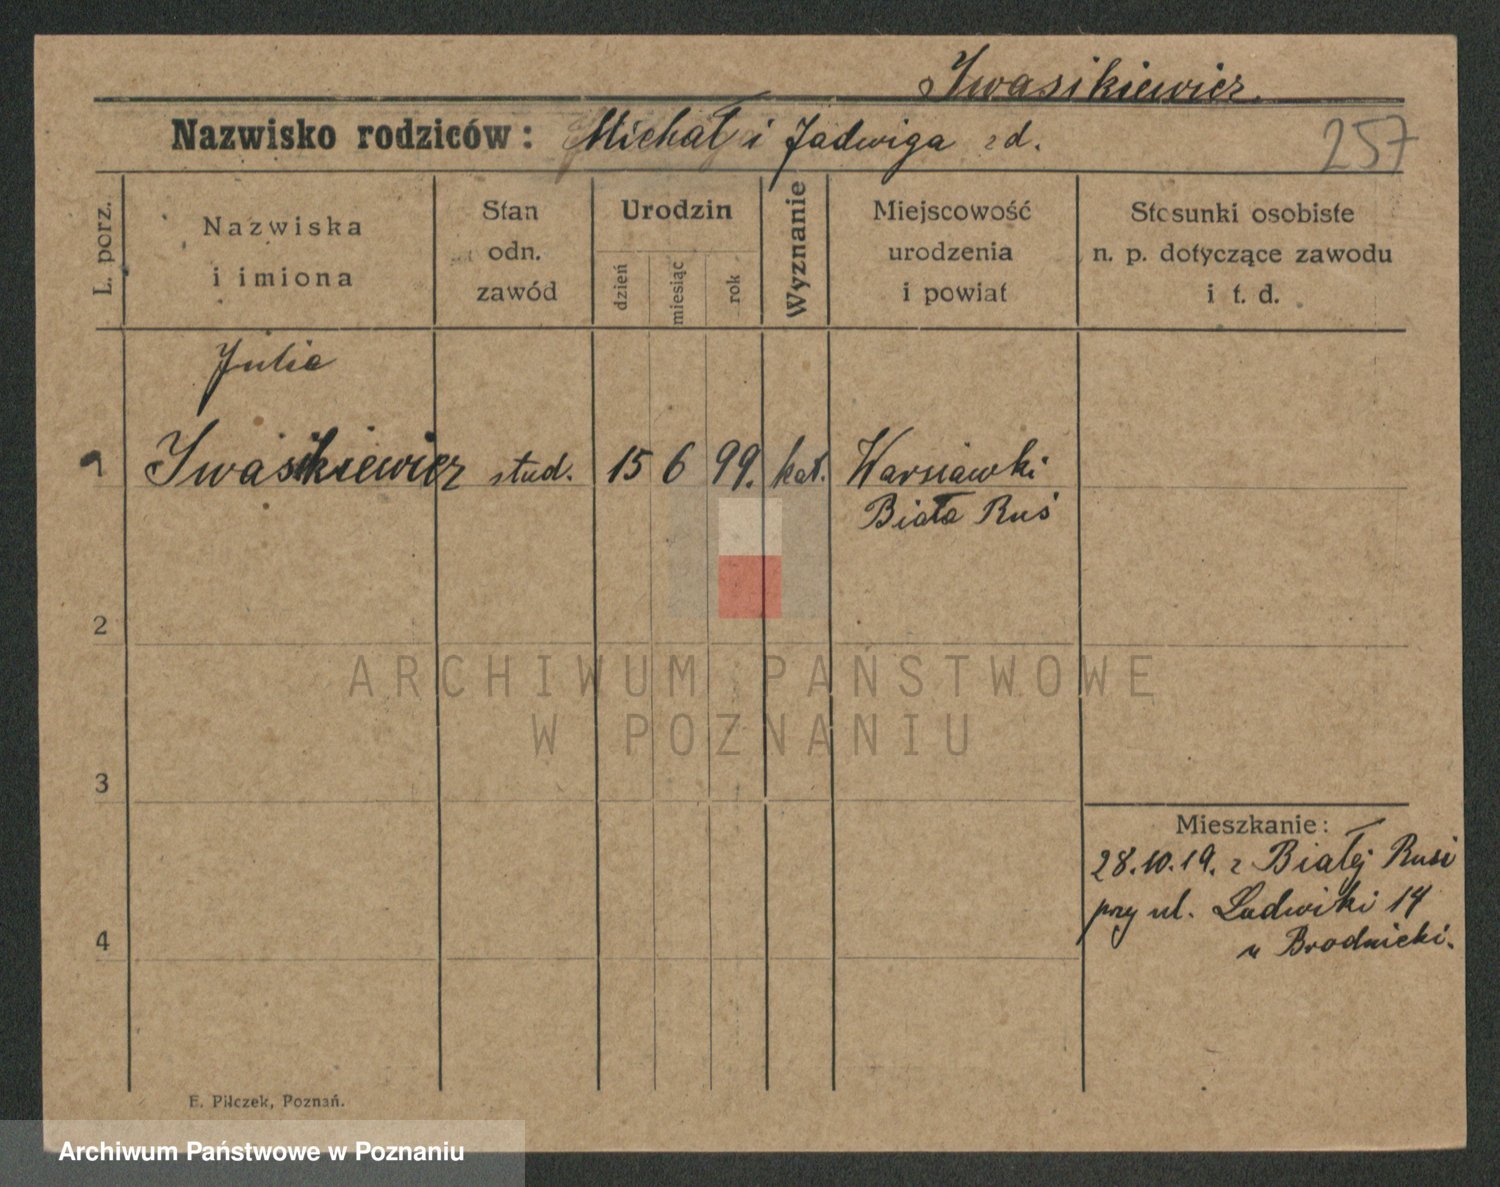 Iwasikiewicz.
Nazwisko rodziców: Michał i Jadwiga zd.
257
L. porz.
Nazwiska
i imiona
Stan
odn.
zawód
Urodzin
dzień
miesiąc
rok
Wyznanie
Miejscowość
urodzenia
i powiat
Stosunki osobiste
n. p. dotyczące zawodu
i t. d.
Julia
1 Iwasikiewicz stud. 15 6 99. kat. Warsiawki
Biała Ruś
2
3
4
Mieszkanie:
28.10.19. z Białej Rusi
przy ul. Ludwiki 14
u Brodnicki.
E. Pilczek, Poznań.
ARCHIWUM PAŃSTWOWE
W POZNANIU
Archiwum Państwowe w Poznaniu